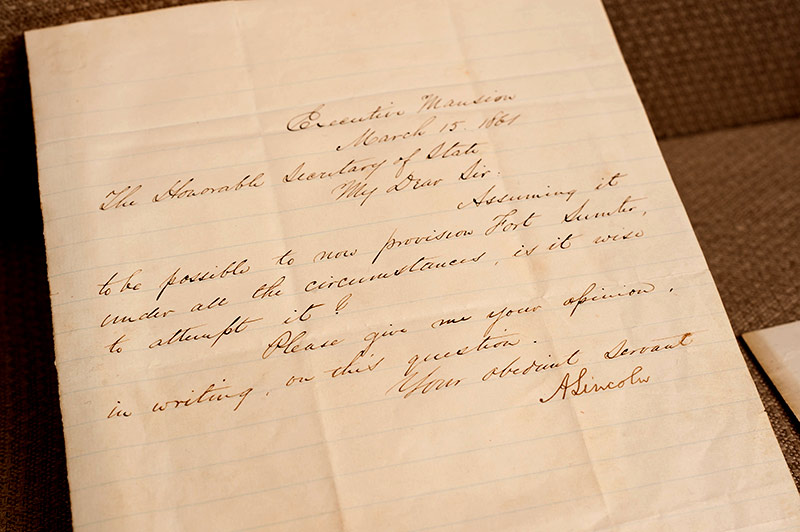 Executive Mansion
March 15. 1861
The Honorable Secretary of State
My Dear Sir.
Assuming it
to be possible to now provision Fort Sumter,
under all the circumstances, is it wise
to attempt it?
Please give me your opinion,
in writing, on this question.
Your obedient servant
A Lincoln